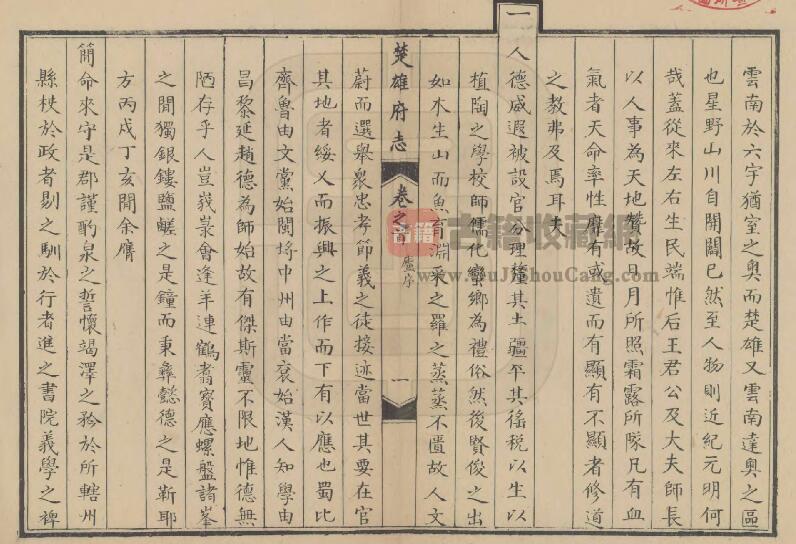 雲南於六宇猶室之奧而楚雄又雲南達奧之區
也星野山川自開闢已然至人物則近紀元明何
哉蓋從來左右生民端惟后王君公及大夫師長
以人事為天地贊故日月所照霜露所隊凡有血
氣者天命率性靡有或遺而有顯有不顯者修道
之教弗及焉耳夫
一人德威遐被設官分理釐其土疆平其徭税以生以
植陶之學校師儒化蠻鄉為禮俗然後賢俊之出
如木生山而魚育淵采之羅之蒸蒸不匱故人文
楚雄府志 卷之首 盧序 一
蔚而選舉衆忠孝節義之徒接迹當世其要在官
其地者綏乂而振興之上作而下有以應也蜀比
齊魯由文黨始閩埓中州由當衮始漢人知學由
昌黎延趙德為師始故有傑斯靈不限地惟德無
陋存乎人豈峩㟍會逢羊連鶴翥寳應螺盤諸峯
之間獨銀鏤鹽鹺之是鐘而秉彝懿德之是靳耶
方丙戌丁亥間余膺
簡命來守是郡謹酌泉之誓懷竭澤之矜於所轄州
縣柣於政者剔之馴於行者進之書院義學之裨
古籍收藏网
www.GuJiShouCang.com